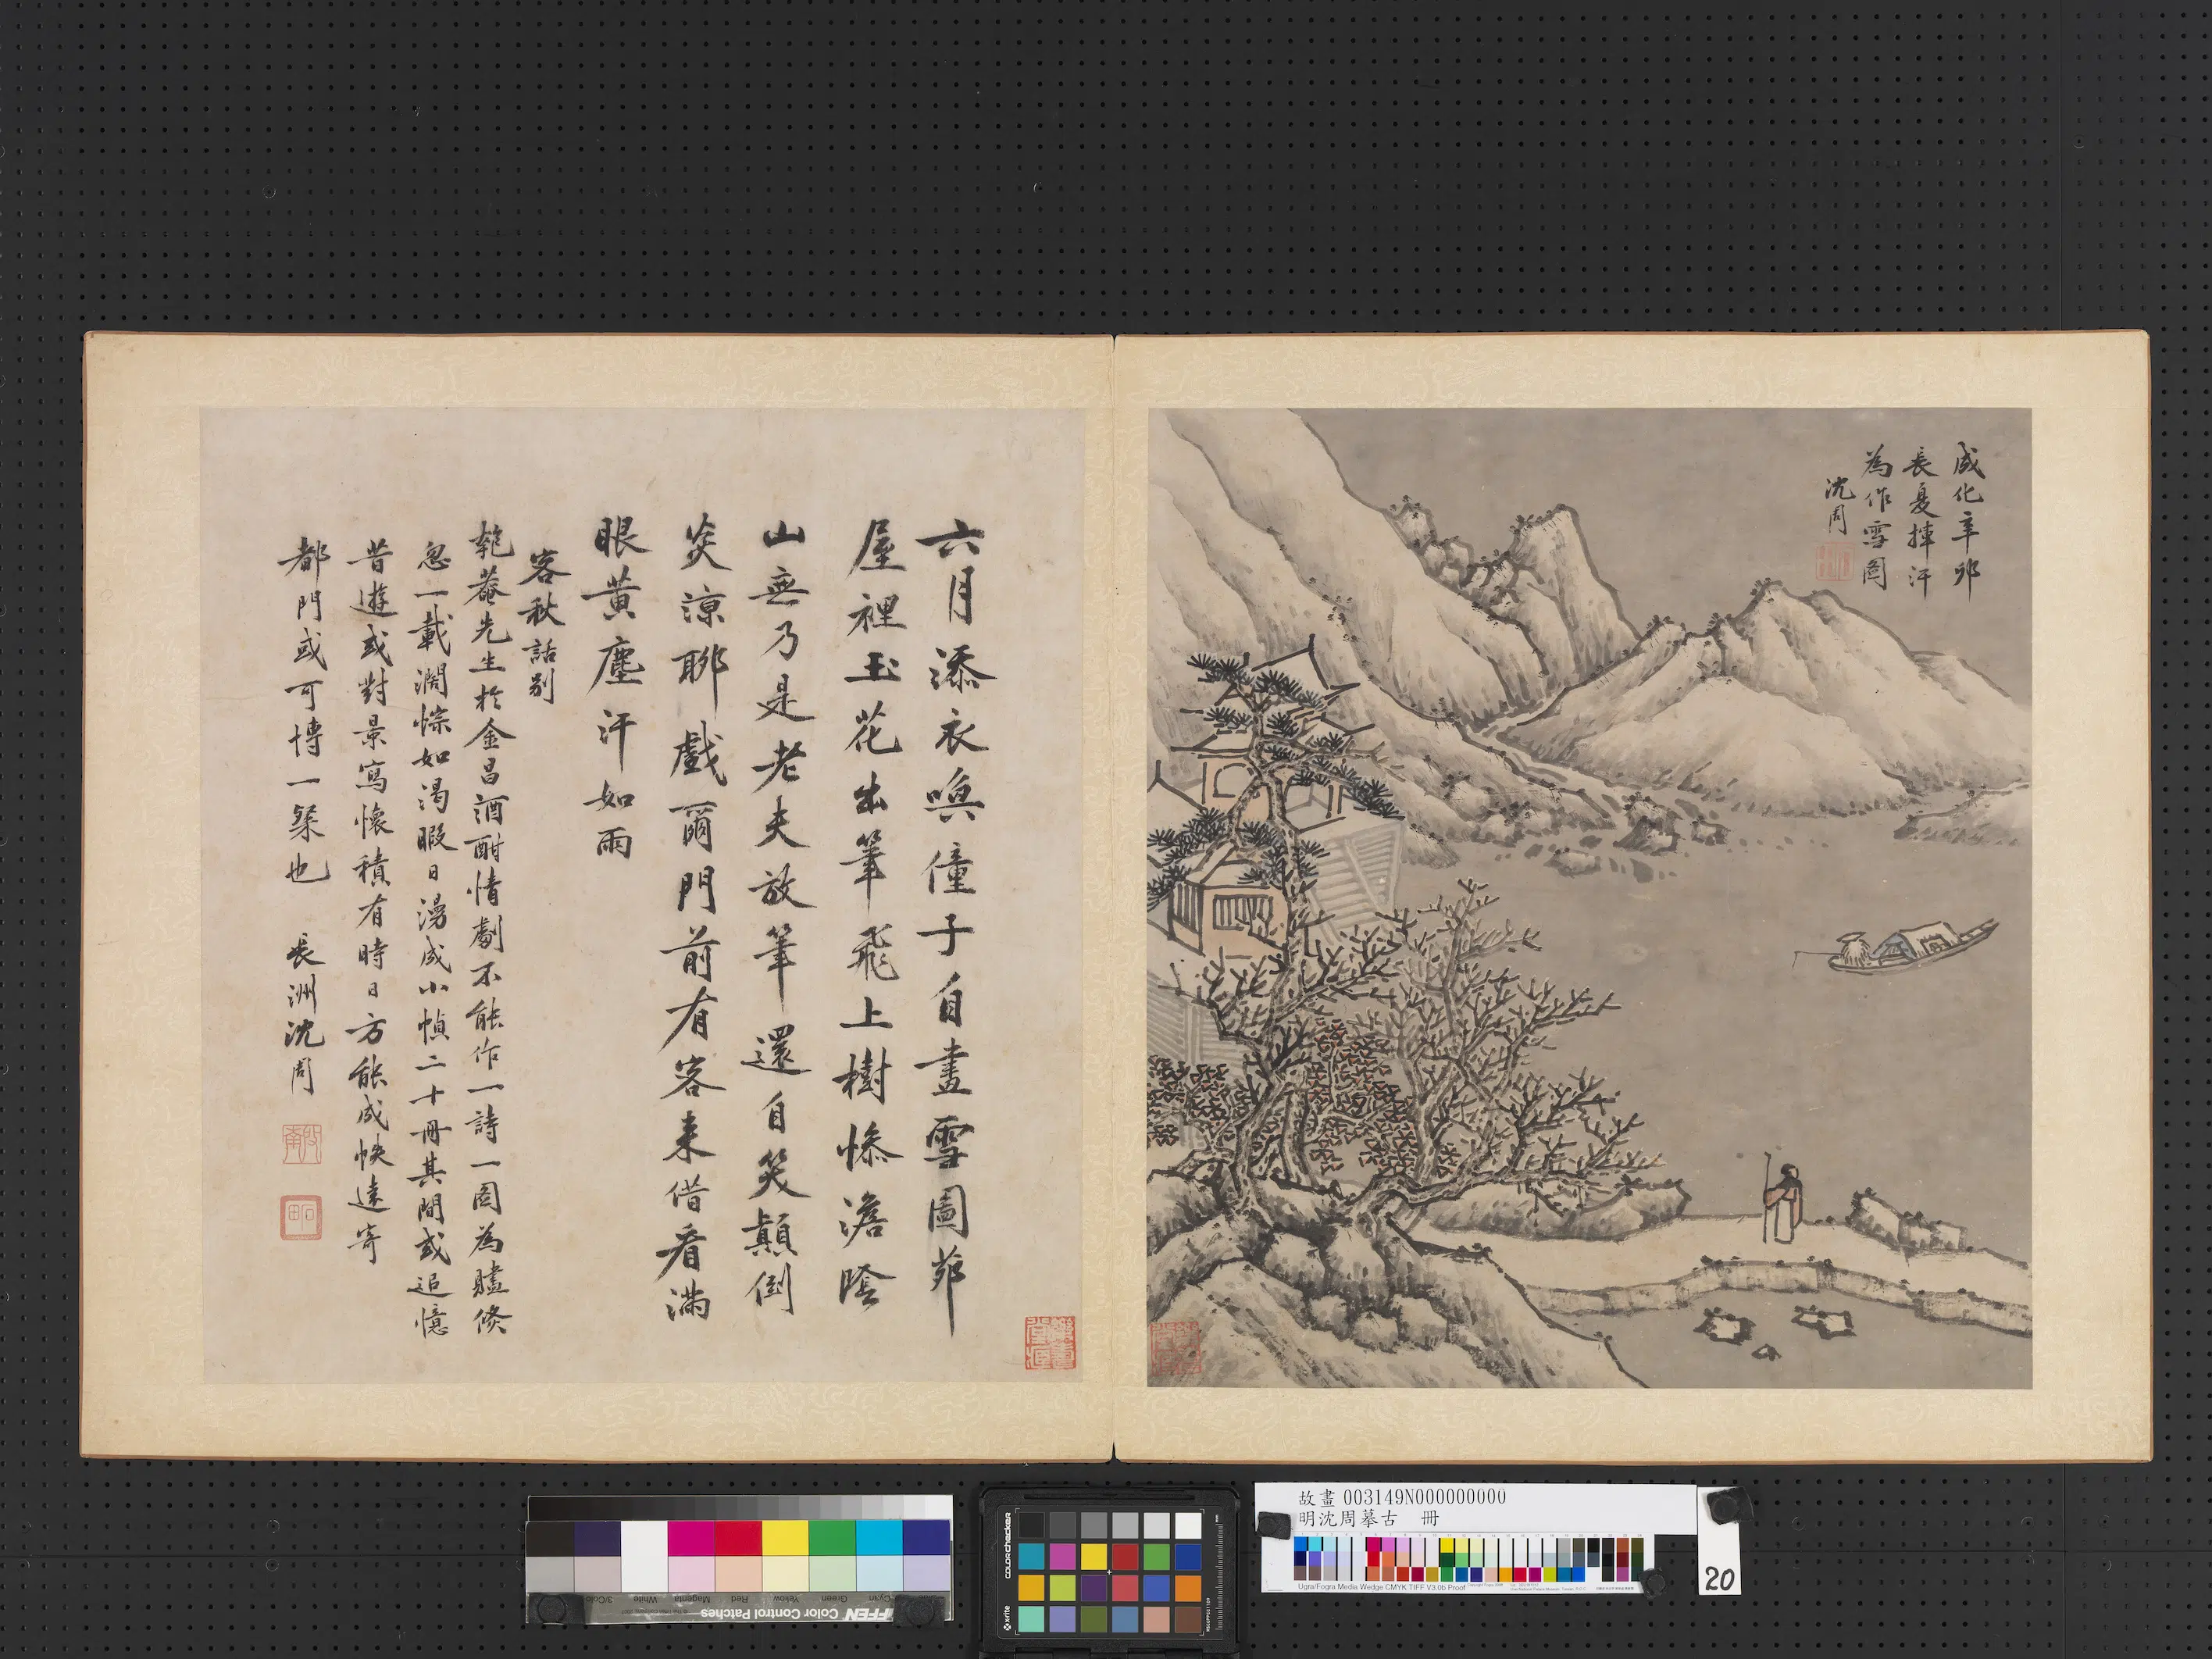 成化辛卯
長夏揮汗
為作雪圖
沈周
六月添衣喚僮子自畫雪圖茆
屋裡玉花出筆飛上樹慘澹陰
山無乃是老夫放筆還自笑顛倒
炎涼聊戲爾門前有客來借看滿
眼黃塵汗如雨
客秋話别
匏菴先生於金昌酒酣情劇不能作一詩一圖為贐倐
忽一載濶悰如渴暇日漫成小幀二十冊其間或追憶
昔遊或對景寫懷積有時日方能成帙遠寄
都門或可博一粲也 長洲沈周
啟南
石田
故畫 003149N000000000
明沈周摹古 冊
20
colorchecker
x-rite
Ugra/Fogra Media Wedge CMYK TIFF V3.0b Proof
TIFFEN Color Control Patches
Cyan
Green
Yellow
Red
Magenta
White
3/Color